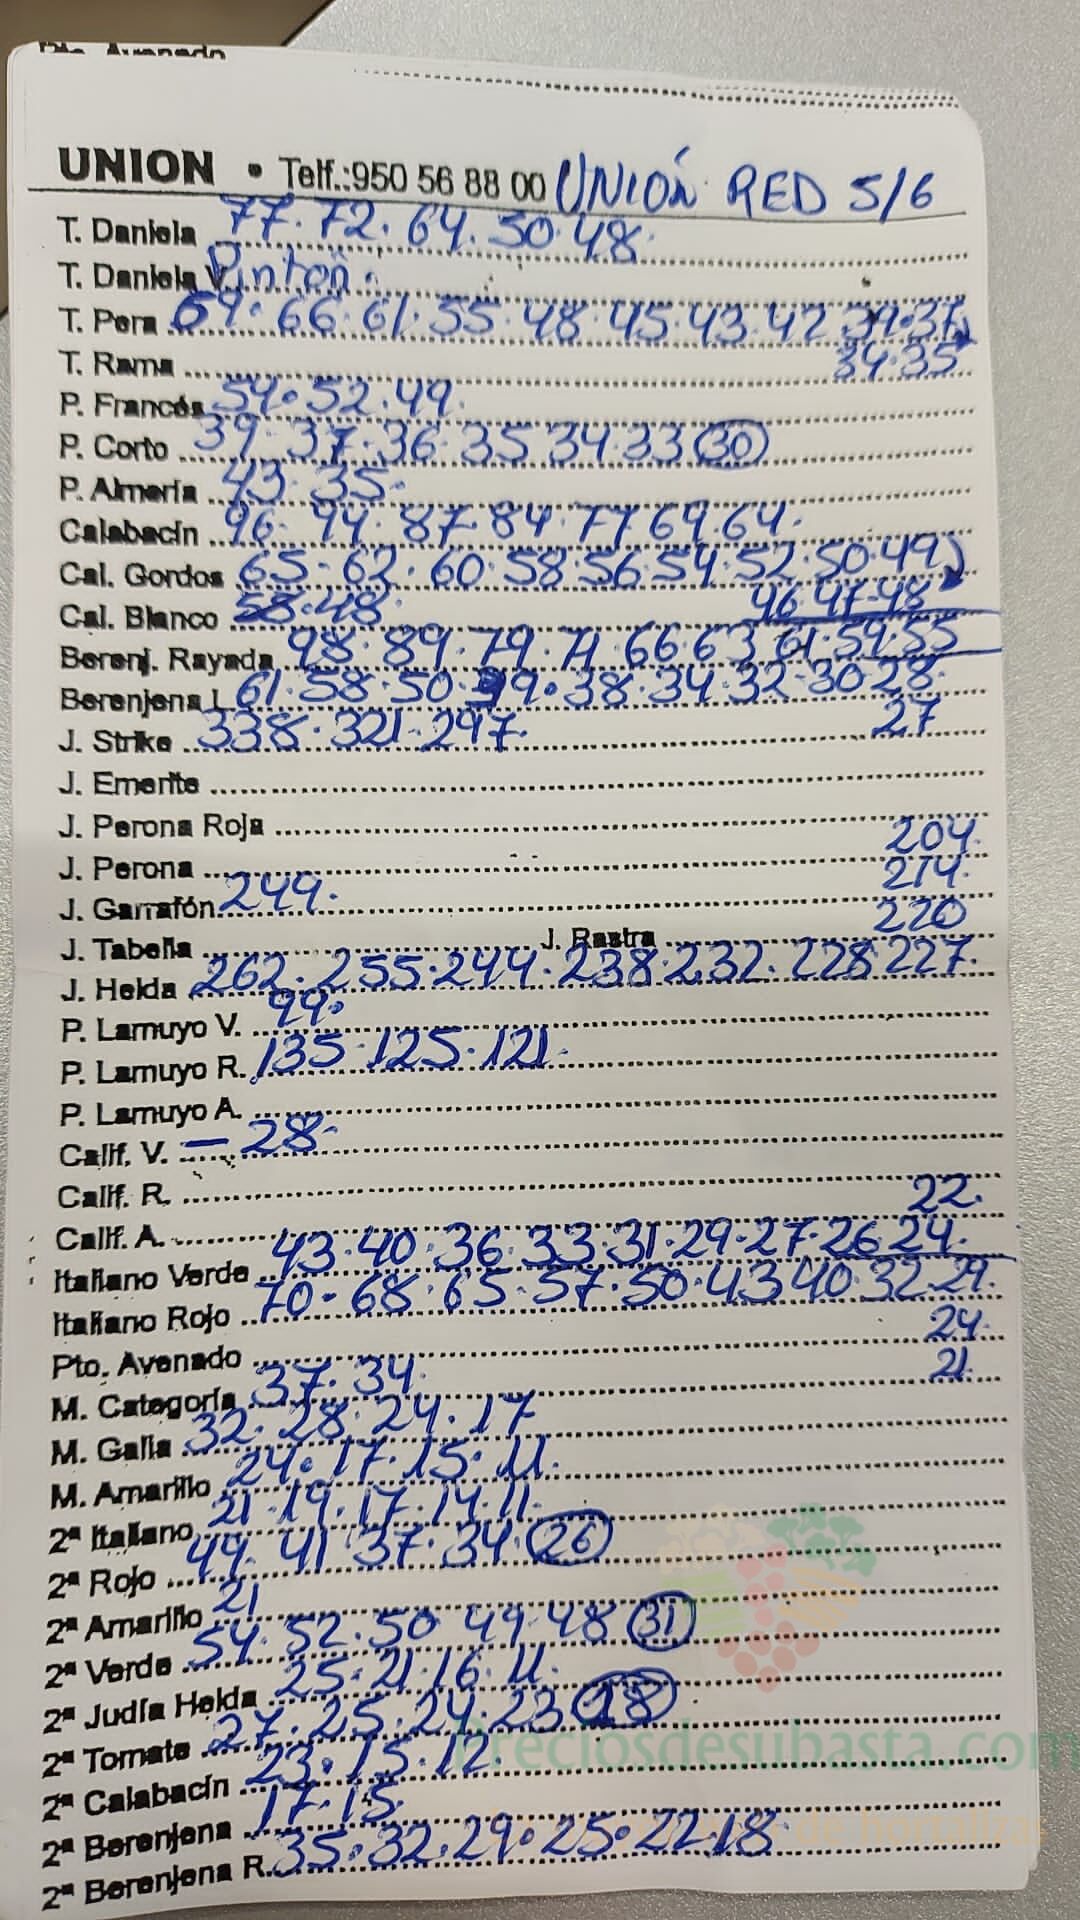 Pto. Avenado
UNION • Telf.:950 56 88 00 UNIÓN RED 5/6
T. Daniela 77. 72. 64. 50. 48.
T. Daniela V. Pinton.
T. Pera 69. 66. 61. 55. 48. 45. 43. 42 39. 37
T. Rama 34. 35
P. Francés 54. 52. 49.
P. Corto 39. 37. 36. 35 34. 33 30
P. Almería 43. 35.
Calabacín 96. 94. 87. 84. 77 69. 64.
Cal. Gordos 65. 62. 60. 58. 56. 54. 52. 50. 49
Cal. Blanco 58. 48. 46 47. 48
Berenj. Rayada 98. 89. 79. 71 66 63 61. 59. 55
Berenjena L 61. 58. 50. 49. 38. 34. 32. 30 28.
J. Strike 338. 321. 297. 27
J. Emerite
J. Perona Roja
J. Perona 204.
J. Garrafón 249. 214.
J. Tabella J. Rastra 220
J. Helda 262. 255. 244. 238. 232. 228 227.
P. Lamuyo V. 99.
P. Lamuyo R. 135. 125. 121.
P. Lamuyo A.
Calif. V. — 28.
Calif. R.
Calif. A. 22.
Italiano Verde 43. 40. 36. 33. 31. 29. 27. 26 24.
Italiano Rojo 70. 68. 65. 57. 50. 43 40. 32 29.
Pto. Avenado 24.
M. Categoría 37. 34. 21.
M. Galia 32. 28. 24. 17
M. Amarillo 24. 17. 15. 11.
2ª Italiano 21. 19. 17. 14. 11.
2ª Rojo 49. 41 37. 34. 26
2ª Amarillo 21
2ª Verde 54. 52. 50 49. 48 31
2ª Judía Helda 25. 21. 16. 11.
2ª Tomate 27. 25. 24. 23 18
2ª Calabacín 23. 15. 12.
Preciosdesubasta.com
2ª Berenjena 17. 15.
de hortalizas
2ª Berenjena R. 35. 32. 29. 25. 22. 18.